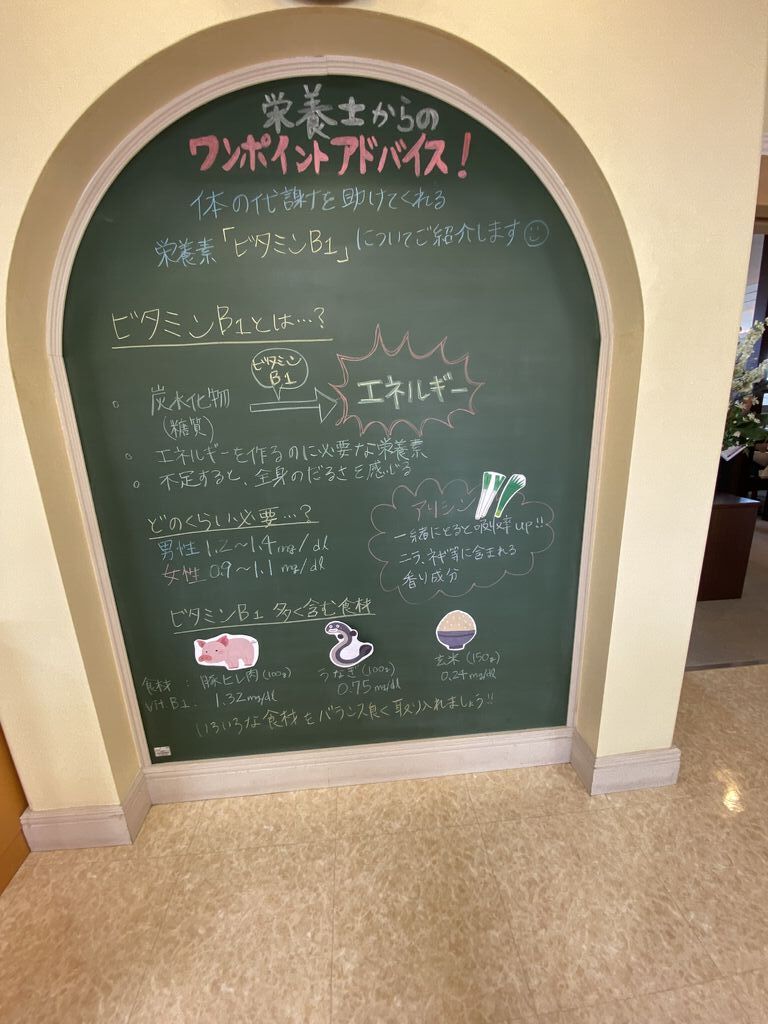 栄養士からの
ワンポイントアドバイス!
体の代謝を助けてくれる
栄養素「ビタミンB1」についてご紹介します
ビタミンB1とは…?
。炭水化物
(糖質)
ビタミン
B1
エネルギー
。エネルギーを作るのに必要な栄養素
。不足すると、全身のだるさを感じる
どのくらい必要…?
男性 1.2~1.4mg/dl
女性 0.9~1.1mg/dl
アリシン
一緒にとると吸収率up!!
ニラ、ネギ等に含まれる
香り成分
ビタミンB1 多く含む食材
食材: 豚ヒレ肉(100g) うなぎ(100g) 玄米(150g)
Vit.B1. 1.32mg/dl 0.75mg/dl 0.24mg/dl
いろいろな食材をバランス良く取り入れましょう!!